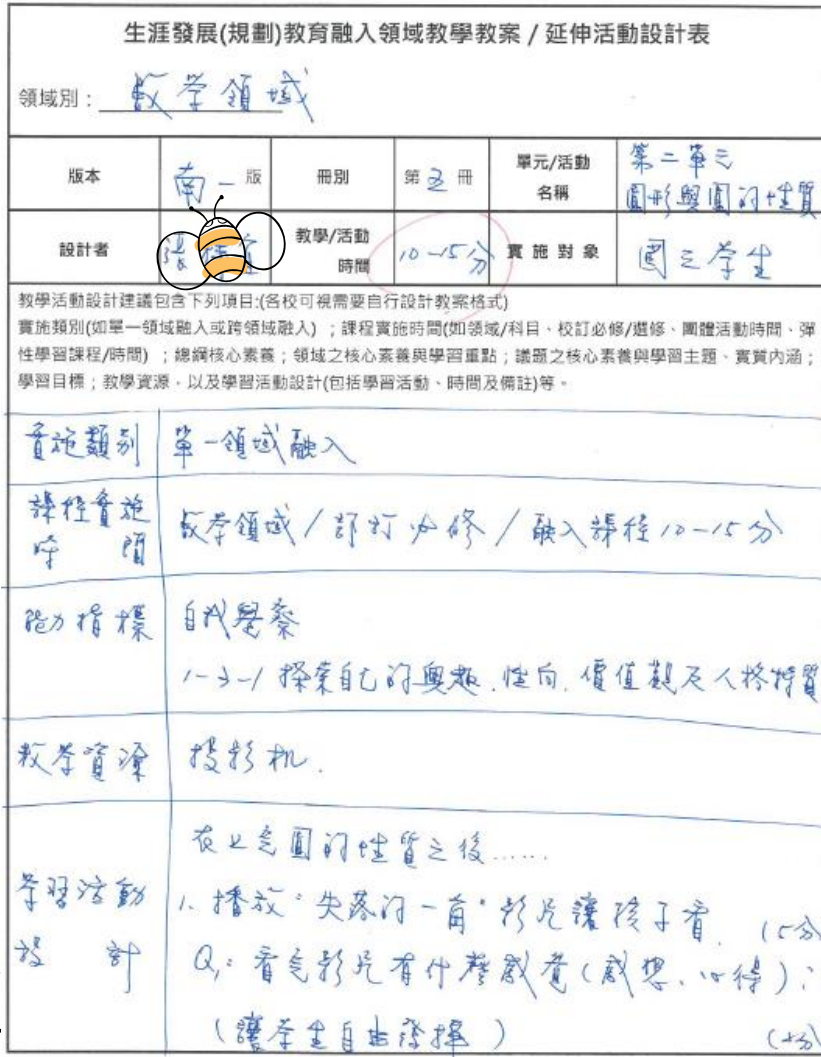 生涯發展(規劃)教育融入領域教學教案 / 延伸活動設計表
領域別： 數学領域
版本 南一版 冊別 第五冊 單元/活動名稱 第二單元 圓形與圓的性質
設計者 教學/活動時間 10-15分 實施對象 國三學生
教學活動設計建議包含下列項目:(各校可視需要自行設計教案格式)
實施類別(如單一領域融入或跨領域融入) ；課程實施時間(如領域/科目、校訂必修/選修、團體活動時間、彈
性學習課程/時間) ；總綱核心素養；領域之核心素養與學習重點；議題之核心素養與學習主題、實質內涵；
學習目標；教學資源，以及學習活動設計(包括學習活動、時間及備註)等。
實施類別 單一領域融入
課程實施時間 數学領域/部訂必修/融入課程10-15分
能力指標 自我覺察
1-3-1 探索自己的興趣、性向、價值觀及人格特質
教学資源 投影机.
在上完圓的性質之後……
学習活動設計 1. 播放"失落的一角"影片讓孩子看. (5分
Q1: 看完影片有什麼感覺(感想、心得);
(讓学生自由發揮)